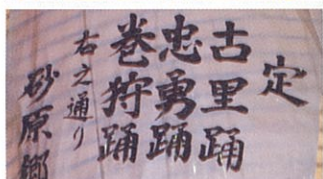 定
古里踊
忠勇踊
巻狩踊
右之通り
砂原郷